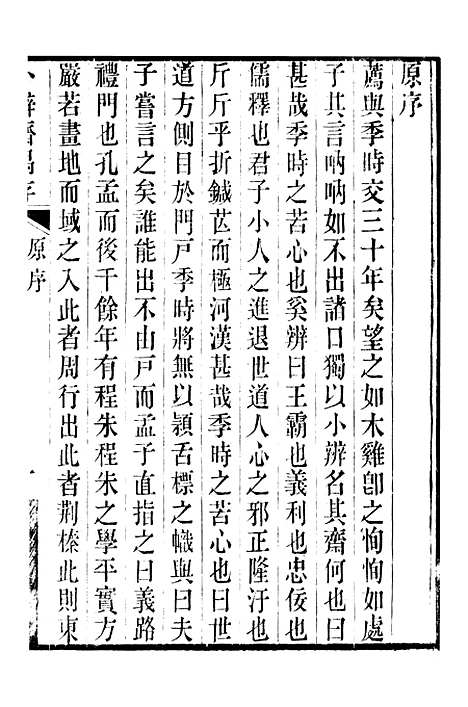 原序
薦與季時交三十年矣望之如木雞卽之恂恂如處
子其言吶吶如不出諸口獨以小辨名其齋何也曰
甚哉季時之苦心也奚辨曰王霸也義利也忠佞也
儒釋也君子小人之進退世道人心之邪正隆汙也
斤斤乎折鍼芒而極河漢甚哉季時之苦心也曰世
道方側目於門戶季時將無以穎舌標之幟與曰夫
子嘗言之矣誰能出不由戸而孟子直指之曰義路
禮門也孔孟而後千餘年有程朱程朱之學平實方
嚴若畫地而域之入此者周行出此者荆榛此則東
小辨齋偶存
原序
一